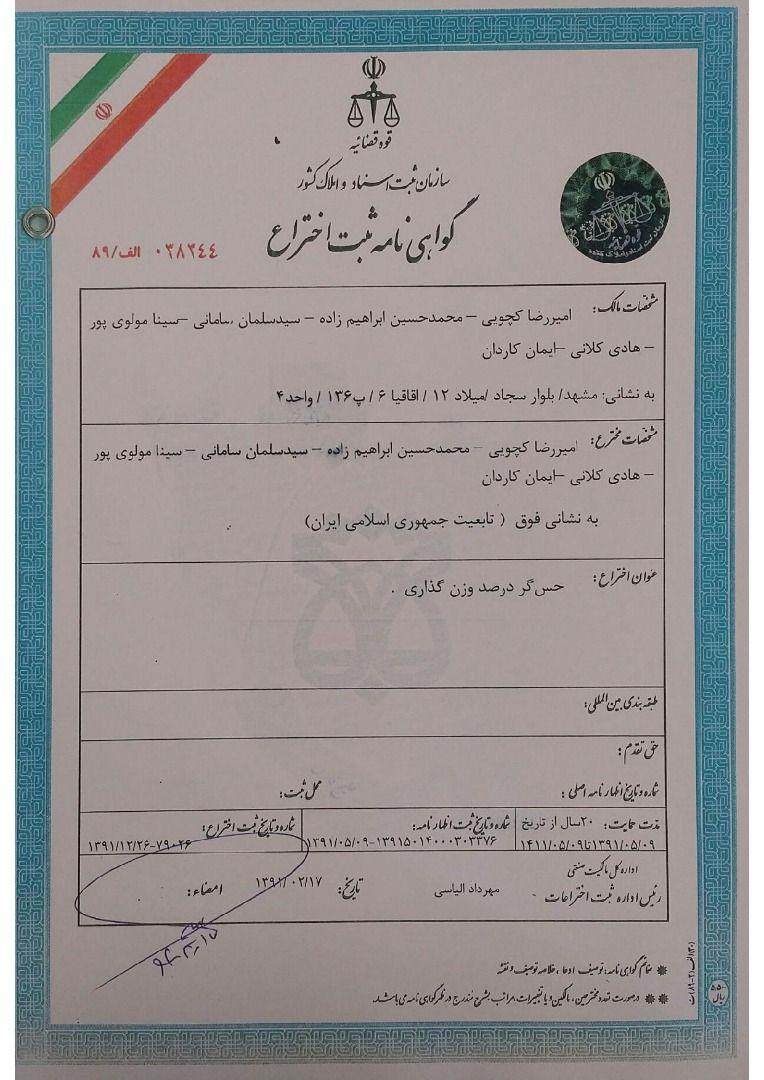 قوه قضائیه
سازمان ثبت اسناد و املاک کشور
گواهی نامه ثبت اختراع
۰۳۸۳۴۴ الف/۸۹
مشخصات مالک: امیررضا کچویی – محمدحسین ابراهیم زاده – سیدسلمان سامانی –سینا مولوی پور
– هادی کلانی –ایمان کاردان
به نشانی: مشهد/ بلوار سجاد /میلاد ۱۲ / اقاقیا ۶ / پ۱۳۶ / واحد۴
مشخصات مخترع: امیررضا کچویی – محمدحسین ابراهیم زاده – سیدسلمان سامانی – سینا مولوی پور
– هادی کلانی –ایمان کاردان
به نشانی فوق ( تابعیت جمهوری اسلامی ایران)
عنوان اختراع: حس‌گر درصد وزن گذاری .
طبقه بندی بین المللی:
حق تقدم:
شماره و تاریخ اظهار نامه اصلی: محل ثبت:
مدت حمایت: ۲۰سال از تاریخ
۱۳۹۱/۰۵/۰۹تا۱۴۱۱/۰۵/۰۹
شماره و تاریخ ثبت اظهار نامه:
۱۳۹۱/۰۵/۰۹-۱۳۹۱۵۰۱۴۰۰۰۳۰۳۳۷۶
شماره و تاریخ ثبت اختراع:
۱۳۹۱/۱۲/۲۶-۷۹۰۲۶
اداره کل مالکیت صنعتی
رئیس اداره ثبت اختراعات مهرداد الیاسی تاریخ: ۰۲/۱۷ امضاء:
ضمائم گواهی نامه: توصیف، ادعا، خلاصه توصیف و نقشه
درصورت تعدد مخترعین، مالکین و یا تغییرات، مراتب بشرح مندرج در ظهر گواهی نامه می باشد.
۵۵۰ ریال